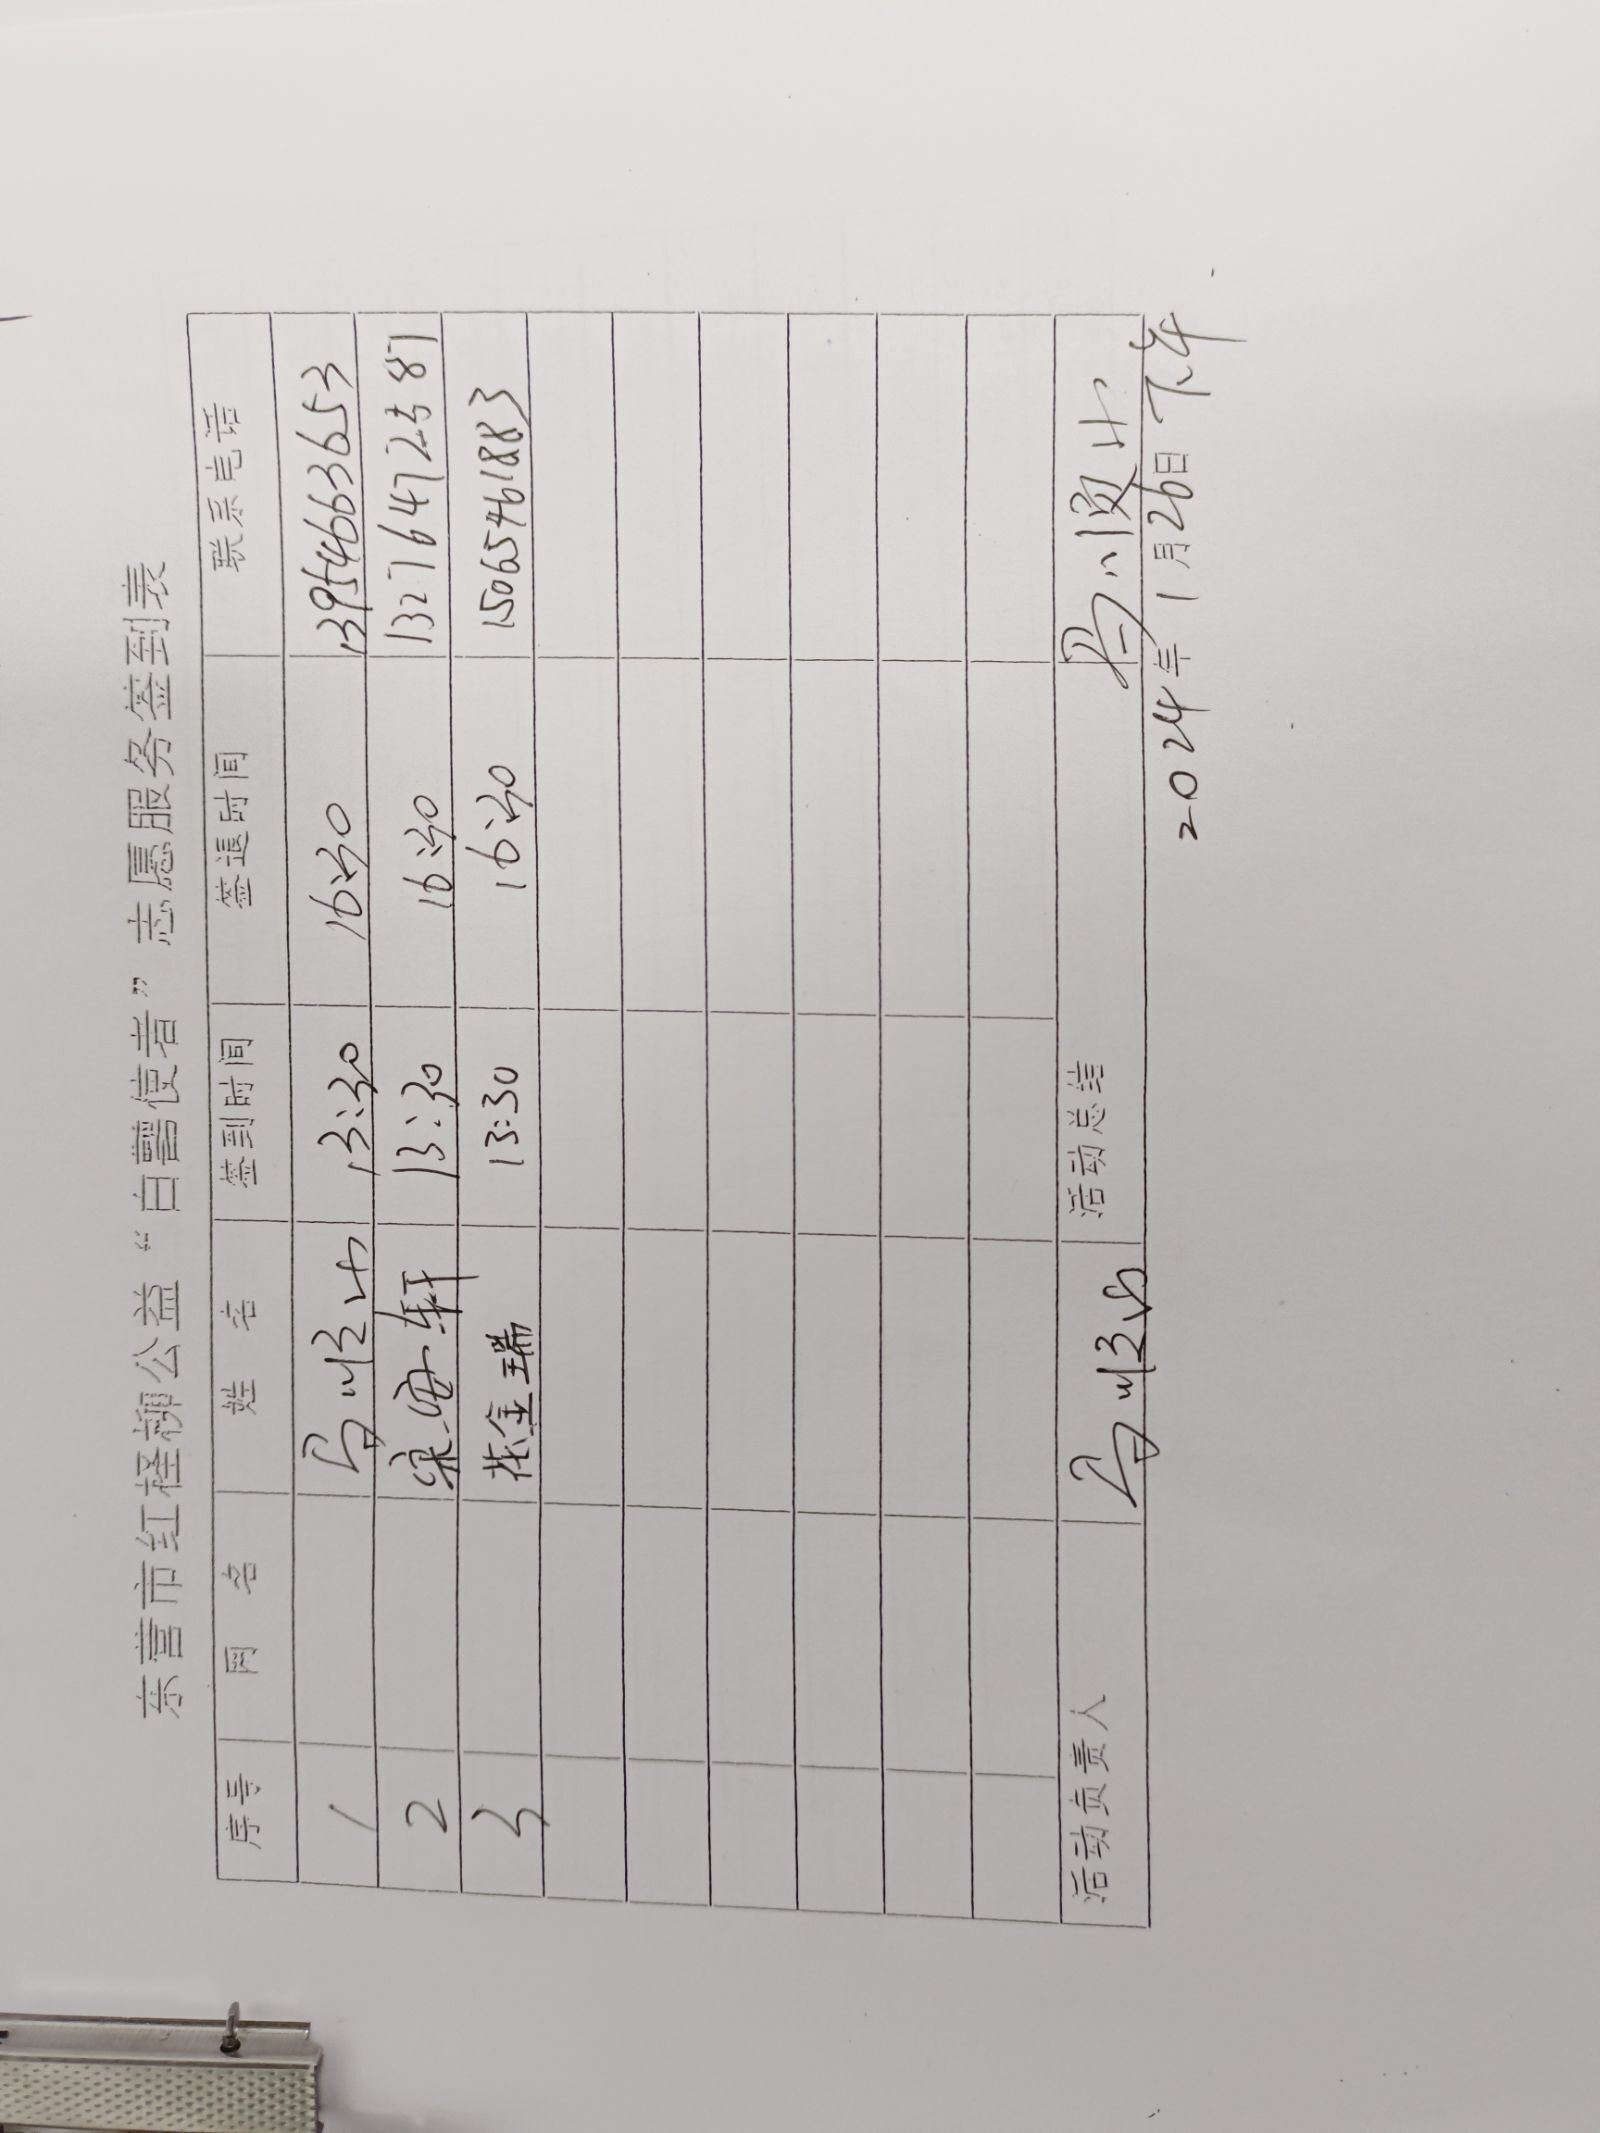 东营市红柽柳公益“自营使者”志愿服务签到表
序号 网名 姓名 签到时间 签退时间 联系电话
1 13:30 16:30 13954663653
2 轩 13:30 16:30
3 花金瑞 13:30 16:30 15065461883
活动负责人 活动总结
2024年1月26日下午